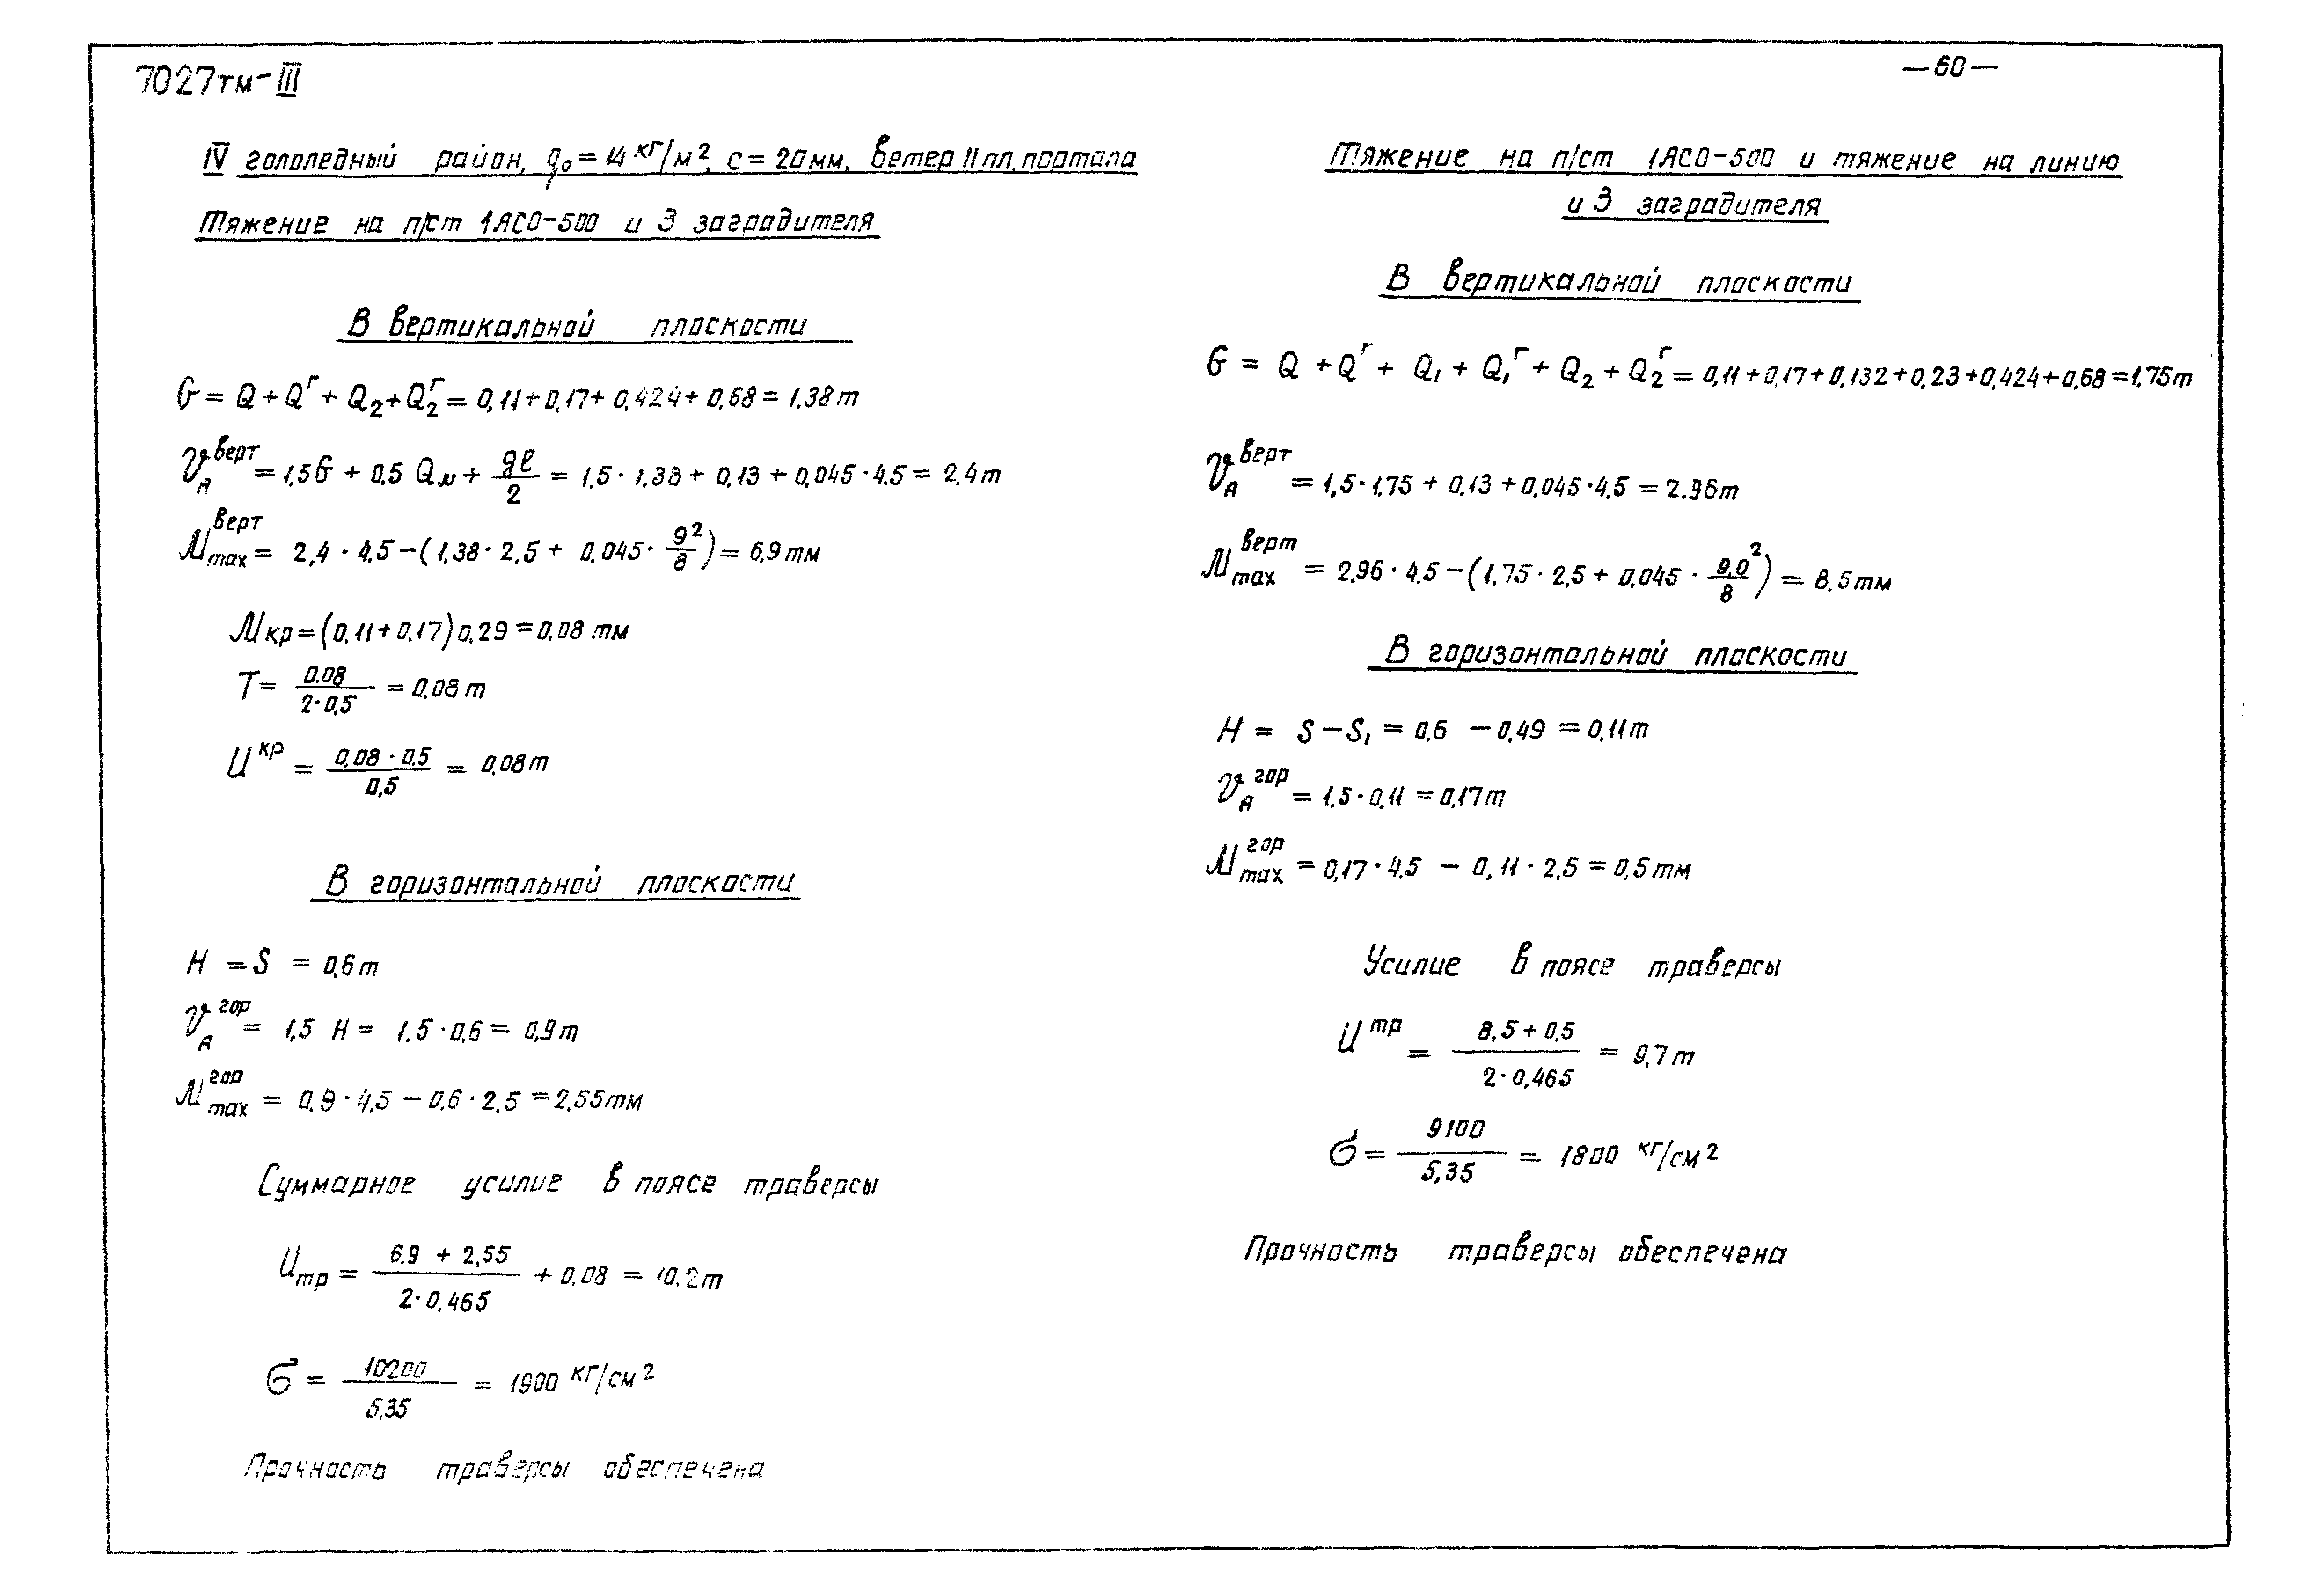 7027тм-III
—60—
IV гололедный район, q₀ = 14 кг/м², с = 20мм, ветер II пл. портала
Тяжение на п/ст 1АСО-500 и 3 заградителя
В вертикальной плоскости
G = Q + Qᴦ + Q₂ + Q₂ᴦ = 0,11 + 0,17 + 0,424 + 0,68 = 1,38т
V_A^верт = 1,5G + 0,5 Q_N + ql/2 = 1,5 · 1,38 + 0,13 + 0,045 · 4.5 = 2,4т
M_max^верт = 2,4 · 4.5 − (1,38 · 2,5 + 0,045 · 9²/8) = 6,9 тм
Mкр = (0,11 + 0,17) 0,29 = 0,08 тм
T = 0.08/(2·0,5) = 0,08 т
U^кр = (0,08 · 0,5)/0,5 = 0,08т
В горизонтальной плоскости
H = S = 0,6т
V_A^гор = 1,5 H = 1.5 · 0,6 = 0,9т
M_max^гор = 0,9 · 4,5 − 0,6 · 2,5 = 2,55тм
Суммарное усилие в поясе траверсы
U_тр = (6.9 + 2,55)/(2·0,465) + 0,08 = 10.2т
σ = 10200/5,35 = 1900 кг/см²
Прочность траверсы обеспечена
Тяжение на п/ст 1АСО-500 и тяжение на линию
и 3 заградителя
В вертикальной плоскости
G = Q + Qᴦ + Q₁ + Q₁ᴦ + Q₂ + Q₂ᴦ = 0,11 + 0,17 + 0,132 + 0,23 + 0,424 + 0,68 = 1,75т
V_A^верт = 1,5 · 1,75 + 0,13 + 0,045 · 4,5 = 2.96т
M_max^верт = 2,96 · 4.5 − (1,75 · 2,5 + 0,045 · 9,0²/8) = 8.5тм
В горизонтальной плоскости
H = S − S₁ = 0,6 − 0,49 = 0,11т
V_A^гор = 1,5 · 0,11 = 0,17т
M_max^гор = 0,17 · 4.5 − 0,11 · 2,5 = 0,5тм
Усилие в поясе траверсы
U^тр = (8,5 + 0,5)/(2·0,465) = 9,7т
σ = 9100/5,35 = 1800 кг/см²
Прочность траверсы обеспечена